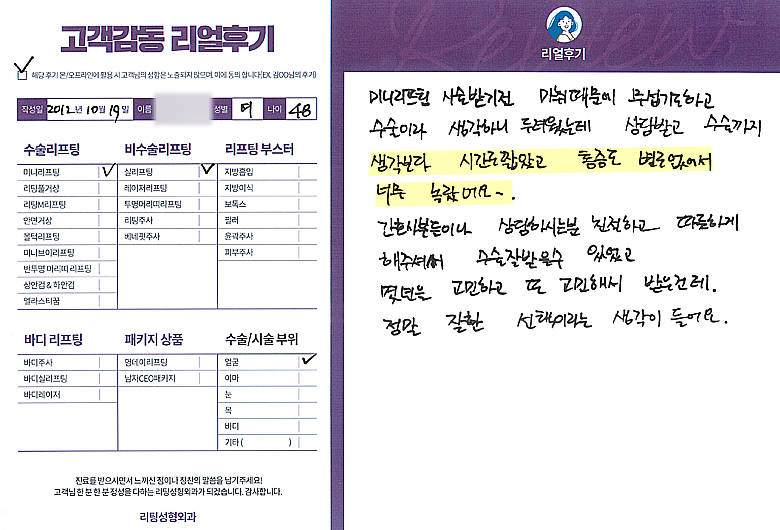 고객감동 리얼후기
해당 후기 온/오프라인에 활용 시 고객님의 성함은 노출되지 않으며, 이에 동의 합니다(EX. 김OO님의 후기)
작성일 2012년 10월 19일 이름 성별 여 나이 48
수술리프팅
미니리프팅
리팅풀거상
리팅M리프팅
안면거상
볼턱리프팅
미니브이리프팅
반투명 머리띠 리프팅
상안검 & 하안검
엘라스티꿈
비수술리프팅
실리프팅
레이저리프팅
투명머리띠리프팅
리팅주사
베네핏주사
리프팅 부스터
지방흡입
지방이식
보톡스
필러
윤곽주사
피부주사
바디 리프팅
바디주사
바디실리프팅
바디레이저
패키지 상품
원데이리프팅
남자CEO패키지
수술/시술 부위
얼굴
이마
눈
목
바디
기타 ( )
진료를 받으시면서 느끼신 점이나 칭찬의 말씀을 남겨주세요!
고객님 한 분 한 분 정성을 다하는 리팅성형외과가 되겠습니다. 감사합니다.
리팅성형외과
Review
리얼후기
미니리프팅 시술받기전 마취때문에 무섭기도하고
수술이라 생각하니 두려웠는데 상담받고 수술까지
생각보다 시간도짧았고 통증도 별로없어서
너무 놀랐어요~.
간호사분들이나 상담하시는분 친절하고 따뜻하게
해주셔서 수술잘받을수 있었고
몇년은 고민하고 또 고민해서 받은건데.
정말 잘한 선택이라는 생각이 들어요.